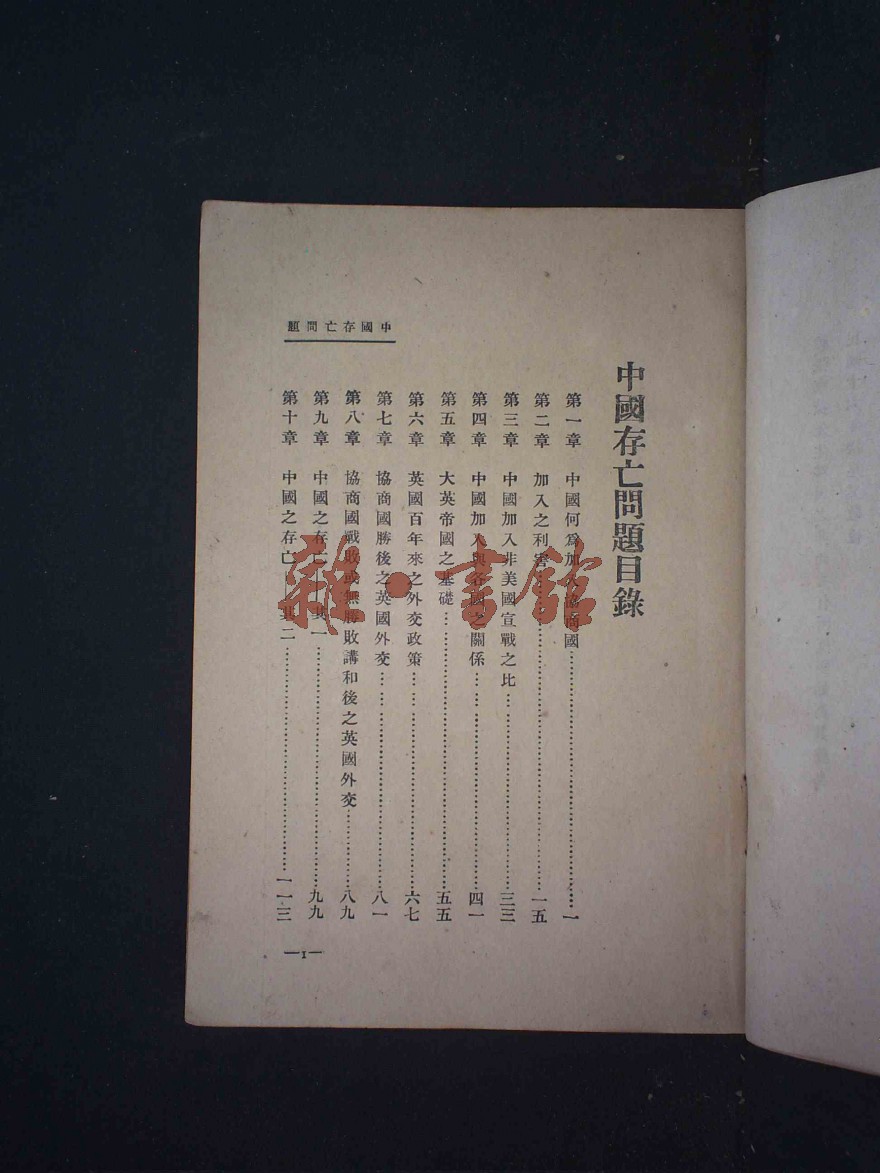 中國存亡問題目錄
第一章 中國何爲加入協商國……一
第二章 加入之利害……一五
第三章 中國加入非美國宣戰之比……三三
第四章 中國加入與各國之關係……四一
第五章 大英帝國之基礎……五五
第六章 英國百年來之外交政策……六七
第七章 協商國勝後之英國外交……八一
第八章 協商國戰敗或無勝敗講和後之英國外交……八九
第九章 中國之存亡——其一……九九
第十章 中國之存亡——其二……一一三
中國存亡問題
—1—
雜·書館